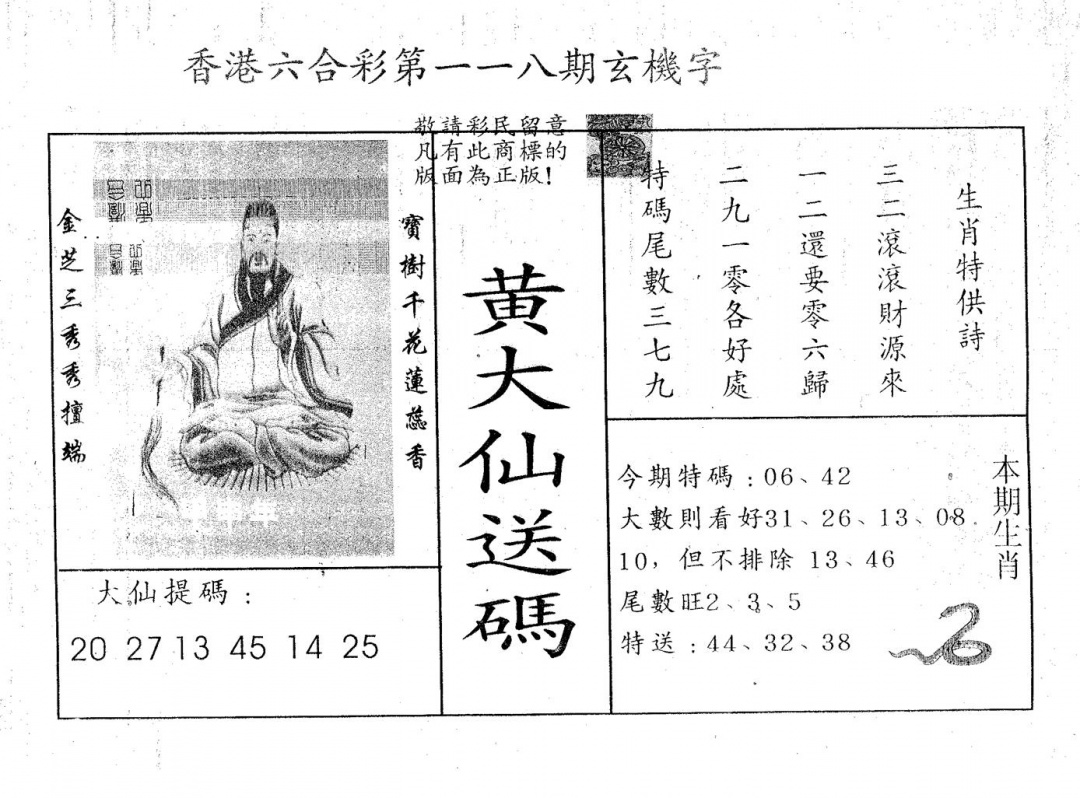 香港六合彩第一一八期玄機字
敬請彩民留意
凡有此商標的
版面為正版!
金芝三秀秀擅端
寶樹千花蓮蕊香
黃大仙送碼
生肖特供詩
三二滾滾財源來
一二還要零六歸
二九一零各好處
特碼尾數三七九
大仙提碼:
20 27 13 45 14 25
今期特碼:06、42
大數則看好31、26、13、08
10,但不排除 13、46
尾數旺2、3、5
特送:44、32、38
本期生肖